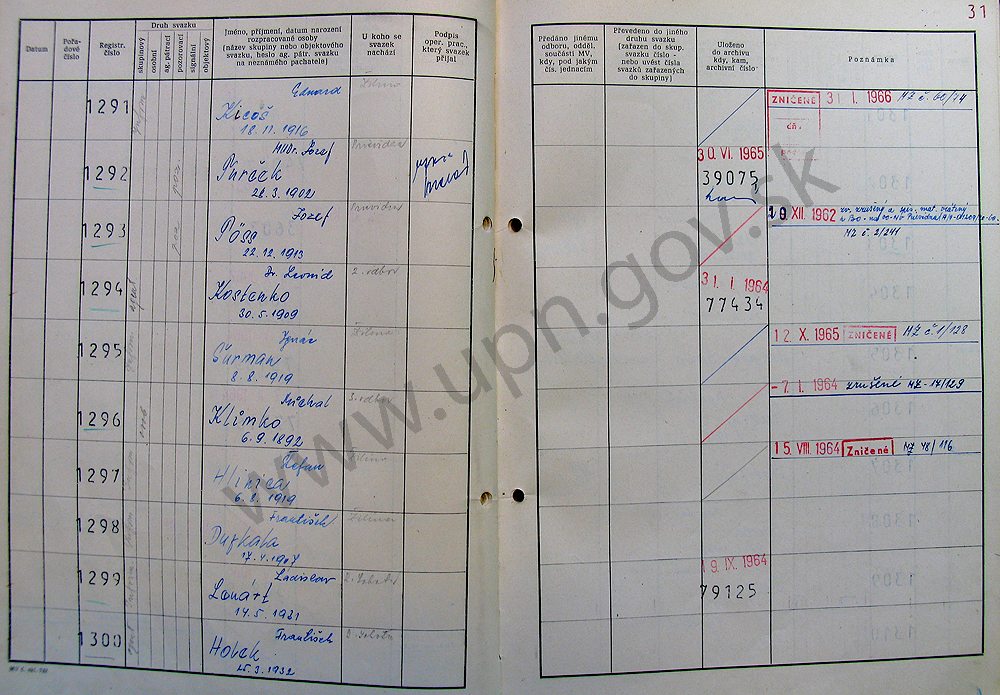 31
Datum
Pořa-
dové
číslo
Registr.
číslo
Druh svazku
skupinový
osobní
ag. pátrací
pozorovací
signální
objektový
Jméno, příjmení, datum narození
rozpracované osoby
(název skupiny nebo objektového
svazku, heslo ag. pátr. svazku
na neznámého pachatele)
U koho se
svazek
nachází
Podpis
oper. prac.,
který svazek
přijal
Předáno jinému
odboru, odděl.
součásti MV,
kdy, pod jakým
čís. jednacím
Převedeno do jiného
druhu svazku
(zařazen do skup.
svazku číslo -
nebo uvést čísla
svazků zařazených
do skupiny)
Uloženo
do archivu
kdy, kam,
archivní číslo
Poznámka
1291
Eduard
Kicoš
18.11.1916
Žilina
ZNIČENÉ 31 I. 1966 MZ č. 60/74
1292
MUDr. Jozef
Púček
26.3.1902
Prievidza
30. VI. 1965
39075
1293
Jozef
Pöss
22.12.1913
Prievidza
10 XII. 1962
MZ č. 2/241
1294
agent
Dr. Leonid
Kostenko
30.5.1909
2. odbor
31. I. 1964
77434
1295
Ignác
Ďurman
8.8.1919
Žilina
12 X. 1965 ZNIČENÉ MZ č. 1/128
1296
Michal
Klimko
6.9.1892
3. odbor
-7. I. 1964 zrušené MZ-17/129
1297
Štefan
Hlinica
6.8.1919
Žilina
15 VIII. 1964 Zničené MZ 48/116
1298
František
Durkala
17.4.1907
Žilina
1299
Ladislav
Lonárt
14.5.1931
19. IX. 1964
79125
1300
agent
František
Holek
25.3.1932
www.upn.gov.sk